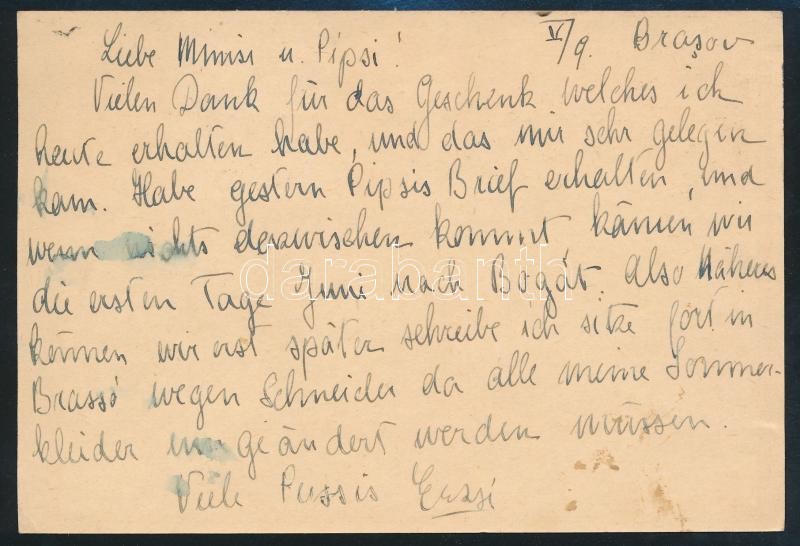 V/9. Brașov
Liebe Mimisi u. Pipsi!
Vielen Dank für das Geschenk welches ich
heute erhalten habe, und das mir sehr gelegen
kam. Habe gestern Pipsis Brief erhalten, und
wenn nichts dazwischen kommt, kämen wir
die ersten Tage Juni nach Bogát. Also Näheres
können wir erst später schreibe ich sitze fort in
Brassó wegen Schneider da alle meine Sommer-
kleider umgeändert werden müssen.
Viele Pussis Erzsi
darabanth